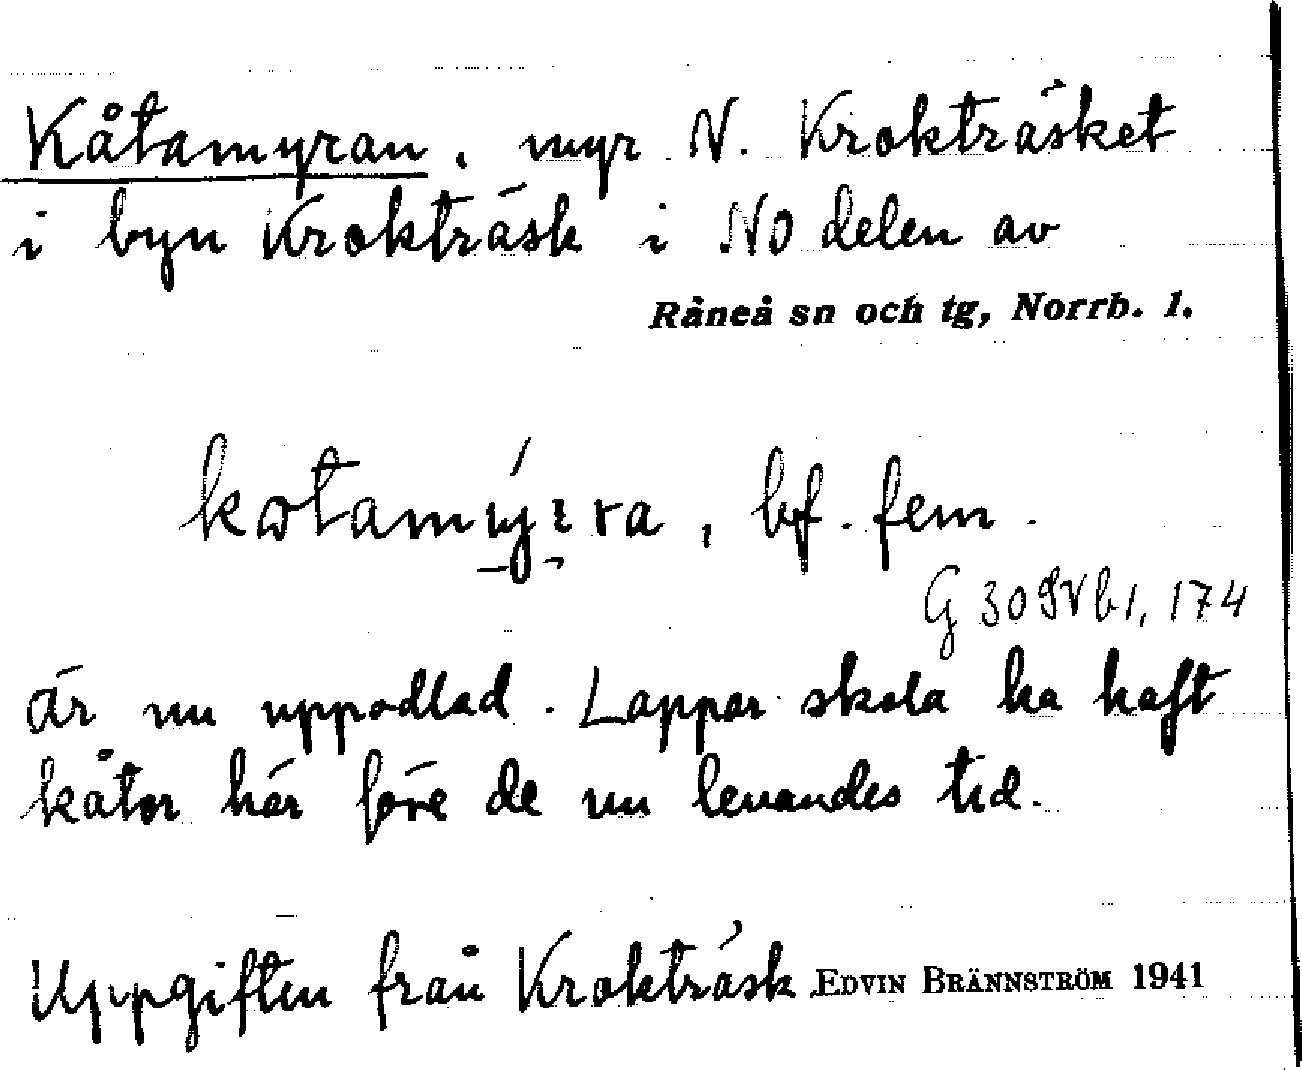 Kåtamyran, myr N. Krokträsket
i byn Krokträsk i NO delen av
Råneå sn och tg, Norrb. l.
bf. fem.
G 30 SV b 1, 174
är nu uppodlad. Lappar skola ha haft
kåtor här före de nu levandes tid.
Uppgiften från Krokträsk EDVIN BRÄNNSTRÖM 1941